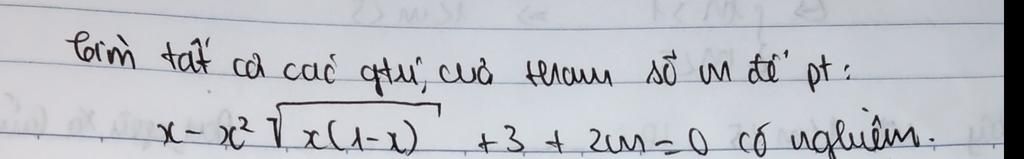 Tìm tất cả các gtrị của tham số m để pt:
x - x² √x(1-x) + 3 + 2m = 0 có nghiệm.